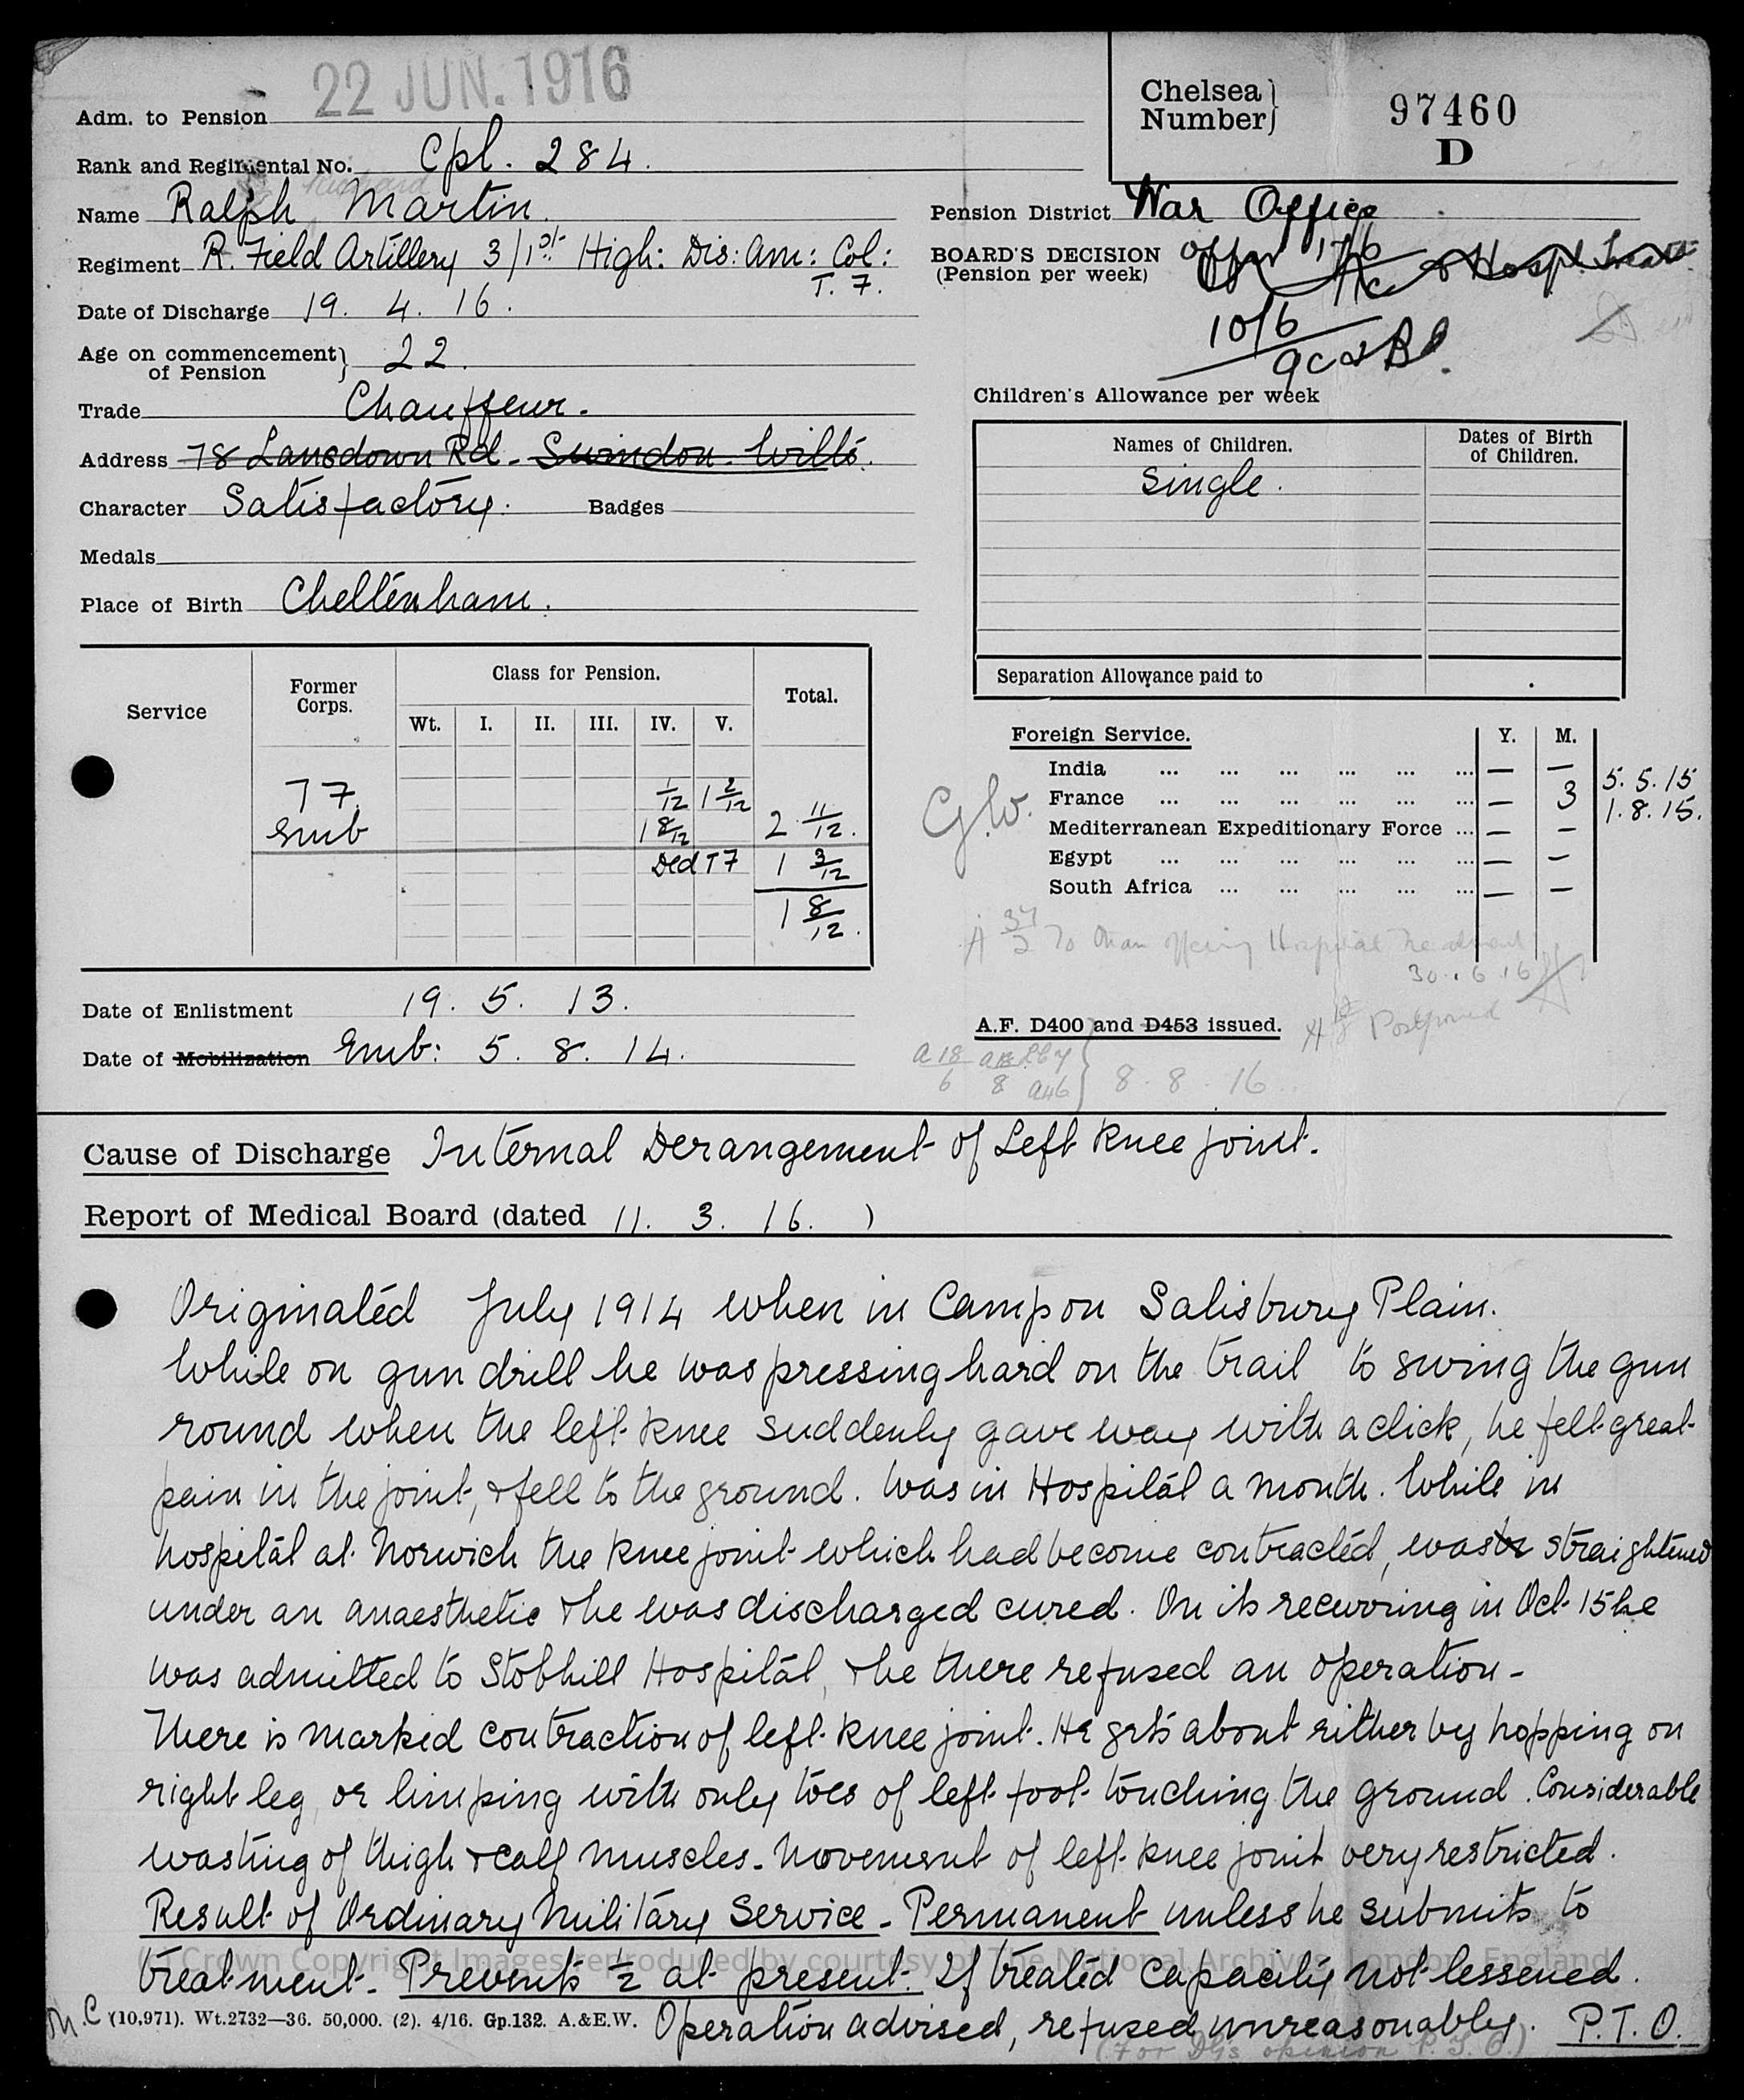 22 JUN. 1916
Adm. to Pension
Chelsea Number} 97460
D
Rank and Regimental No. Cpl. 284.
Name Ralph Martin.
Regiment R. Field Artillery 3/1st High: Dis: Am: Col:
T. F.
Date of Discharge 19. 4. 16.
Age on commencement of Pension} 22.
Trade Chauffeur.
Address 78 Lansdown Rd - Swindon - Wilts.
Character Satisfactory. Badges
Medals
Place of Birth Cheltenham.
Pension District War Office
BOARD'S DECISION
(Pension per week)
10/6
Children's Allowance per week
Names of Children. Dates of Birth of Children.
Single.
Separation Allowance paid to
Service Former Corps. Class for Pension. Total.
Wt. I. II. III. IV. V.
T F. 1/12 1 2/12
Emb 1 8/12 2 11/12.
Ded T F 1 3/12
1 8/12.
Foreign Service. Y. M.
India ... ... ... ... ... ... — —
France ... ... ... ... ... ... — 3
5.5.15
1.8.15.
Mediterranean Expeditionary Force ... — —
Egypt ... ... ... ... ... ... — —
South Africa ... ... ... ... ... — —
30.6.16
Date of Enlistment 19. 5. 13.
Date of Mobilization Emb: 5. 8. 14.
A.F. D400 and D453 issued.
Postponed
8. 8. 16
Cause of Discharge Internal Derangement of Left Knee joint.
Report of Medical Board (dated 11. 3. 16. )
Originated July 1914 when in Camp on Salisbury Plain.
While on gun drill he was pressing hard on the trail to swing the gun
round when the left knee suddenly gave way with a click, he felt great
pain in the joint, & fell to the ground. Was in Hospital a month. While in
hospital at Norwich the knee joint which had become contracted, was straightened
under an anaesthetic & he was discharged cured. On its recurring in Oct 15 he
was admitted to Stobhill Hospital, & he there refused an operation -
There is marked contraction of left knee joint. He gets about either by hopping on
right leg, or limping with only toes of left foot touching the ground. Considerable
wasting of thigh & calf muscles. Movement of left knee joint very restricted.
Result of Ordinary Military Service - Permanent unless he submits to
treatment. Prevents 1/2 at present. If treated capacity not lessened.
Crown Copyright Images reproduced by courtesy of The National Archives, London, England
(10,971). Wt.2732—36. 50,000. (2). 4/16. Gp.132. A.&E.W. Operation advised, refused unreasonably. P.T.O.